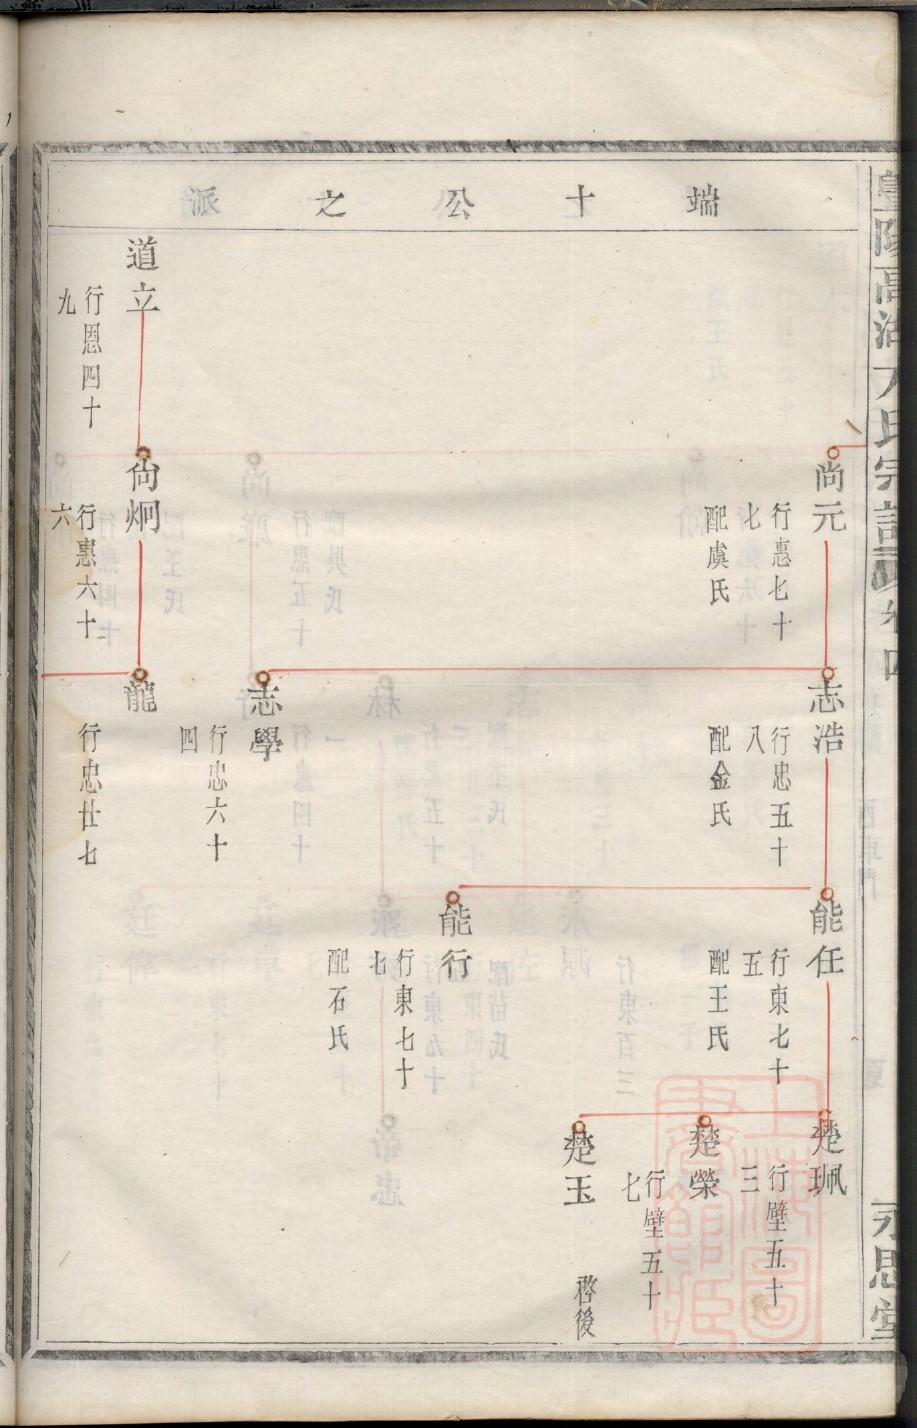 端十公之派
尚元
行惠七十
七
配虞氏
志浩
行忠五十
八
配金氏
能任
行東七十
五
配王氏
楚珮
行壁五十
三
楚榮
行壁五十
七
楚玉
啓後
能行
行東七十
七
配石氏
志學
行忠六十
四
道立
行恩四十
九
尙炯
行惠六十
六
龍
行忠廿七
暨陽高湖
氏宗譜
卷四
永思堂